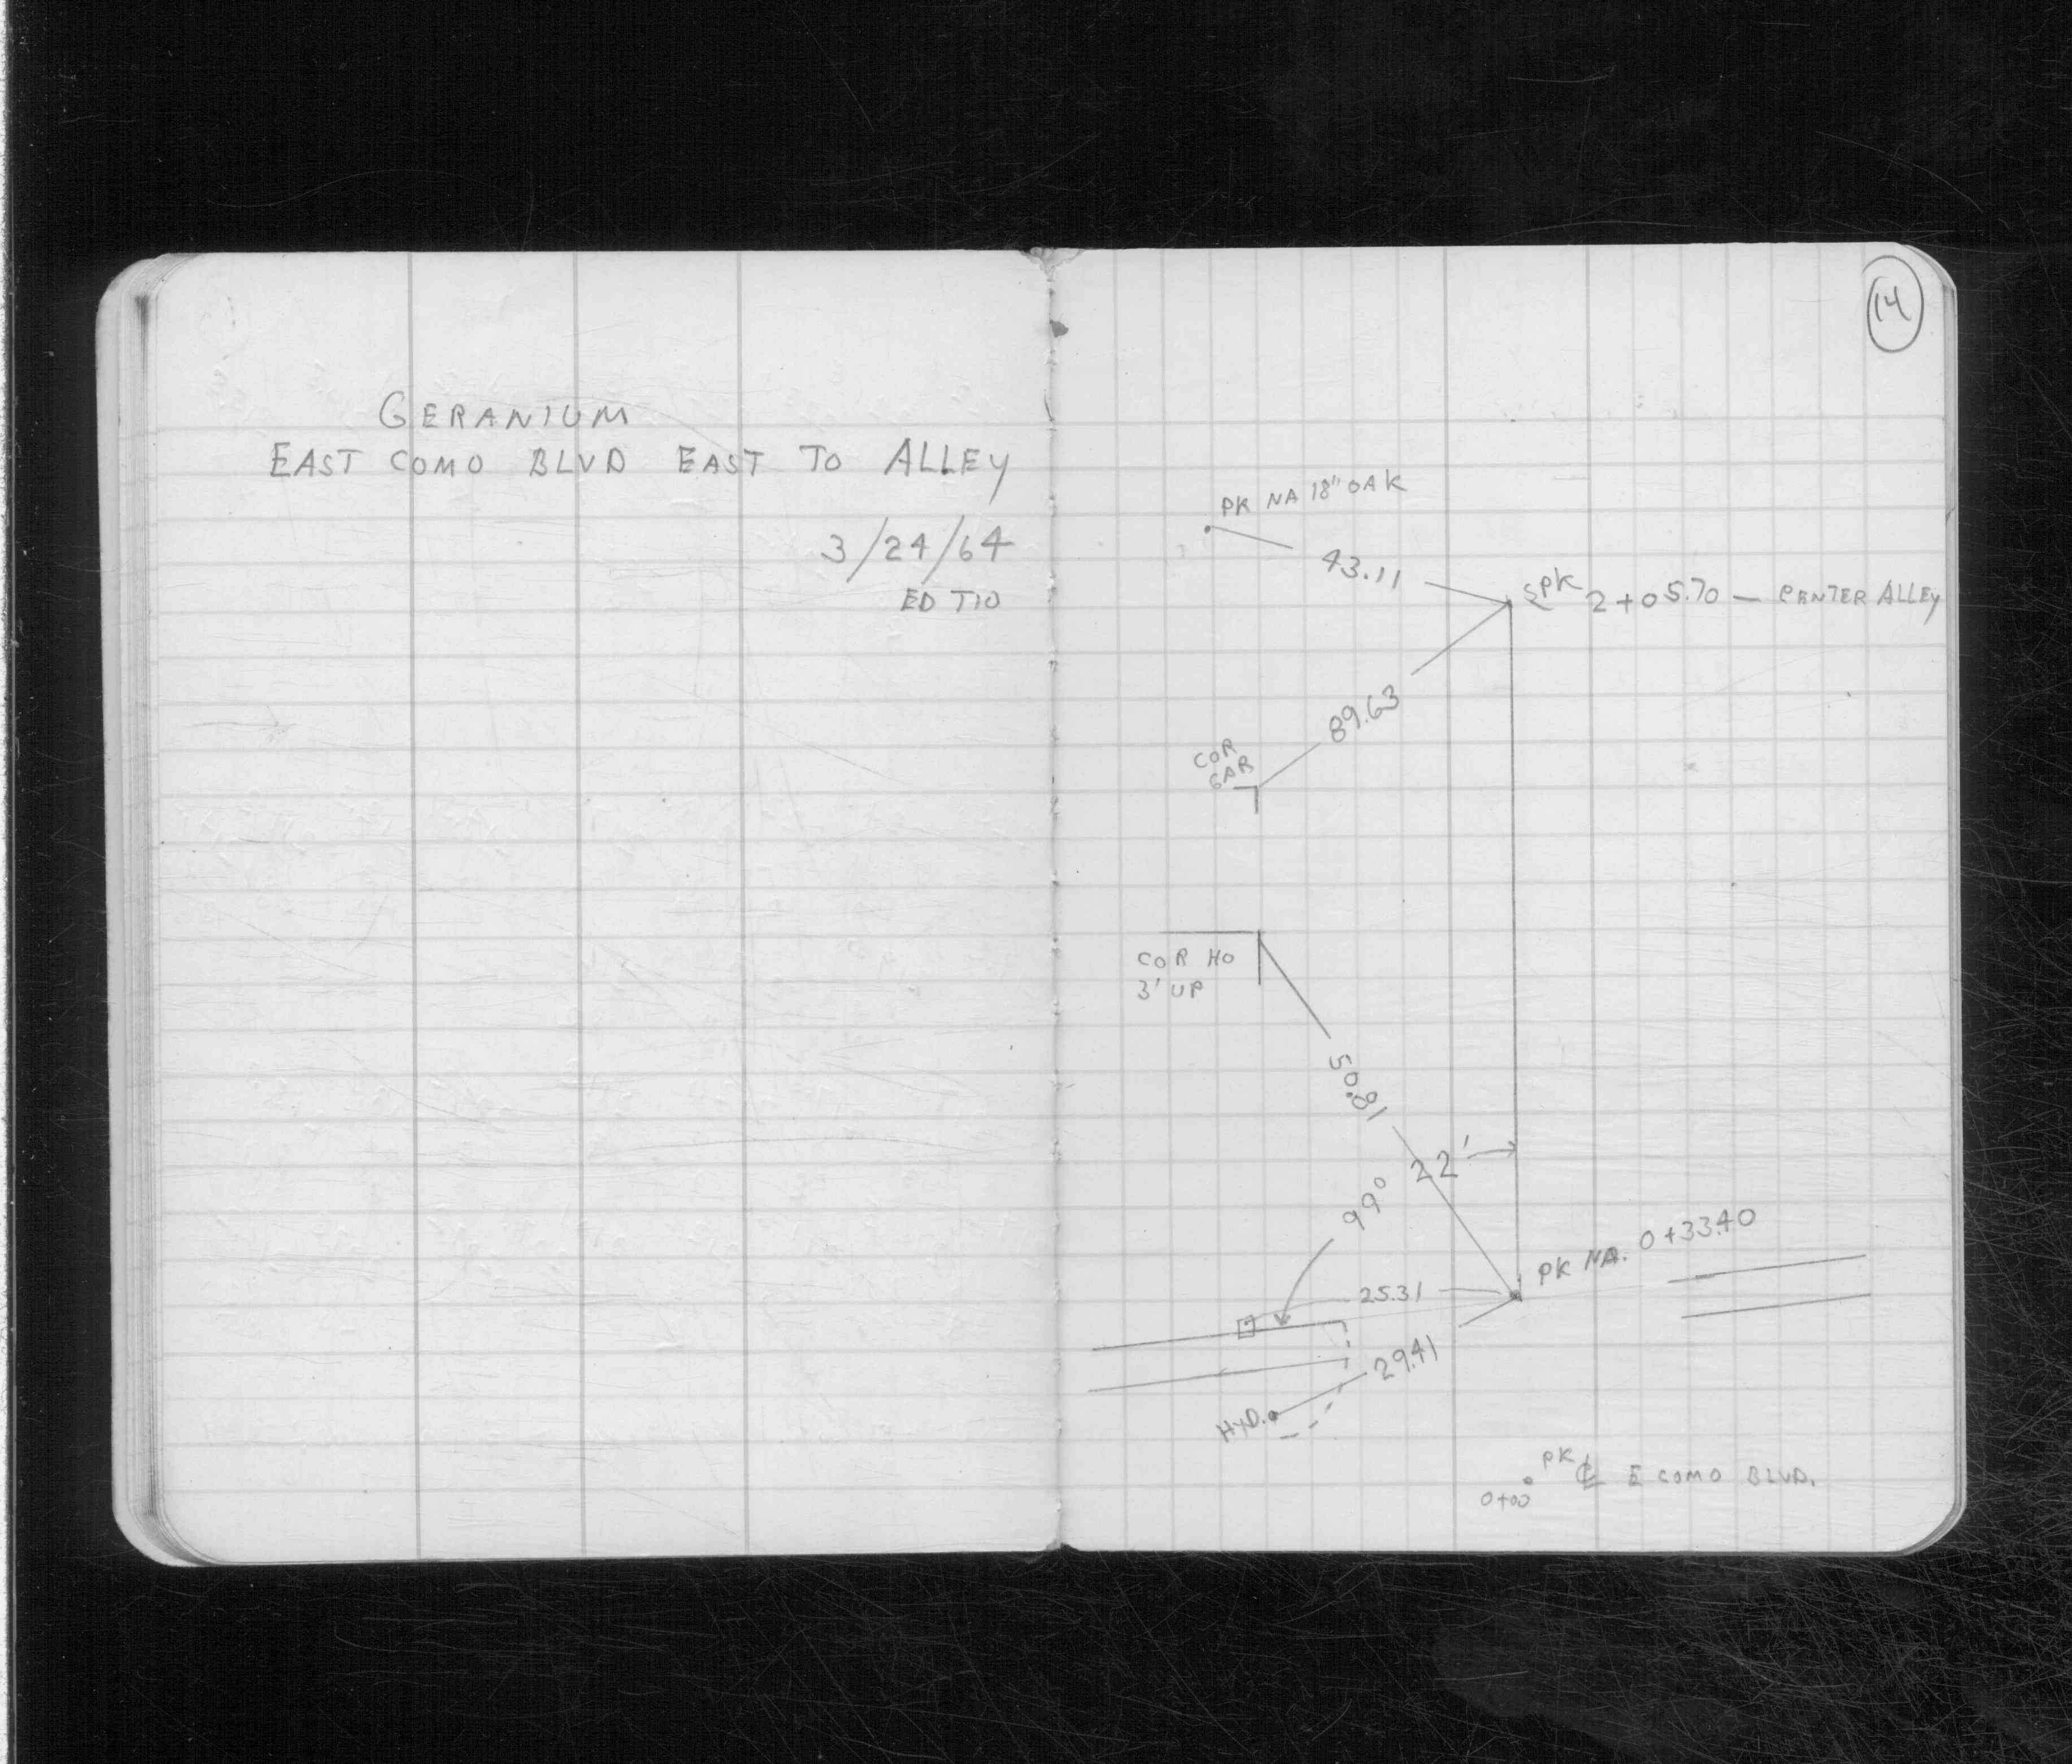 GERANIUM
EAST COMO BLVD EAST TO ALLEY
3/24/64
ED TIO
14
PK NA 18" OAK
43.11
SPK 2+05.70 — CENTER ALLEY
89.63
COR
GAR
COR HO
3' UP
50.81
22'
99°
PK NA. 0+33.40
25.31
29.41
HYD.
PK ℄ E COMO BLVD.
0+00